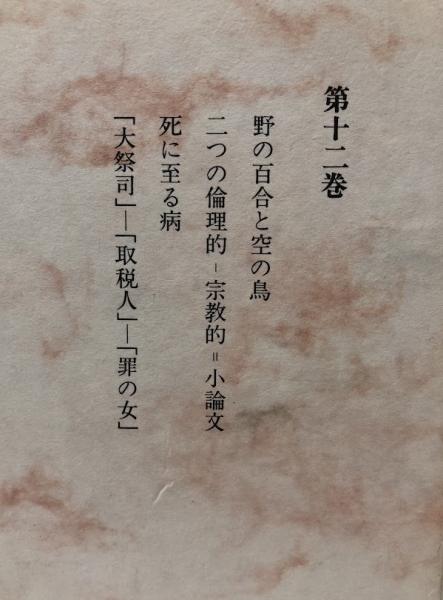 第十二巻
野の百合と空の鳥
二つの倫理的-宗教的=小論文
死に至る病
「大祭司」—「取税人」—「罪の女」